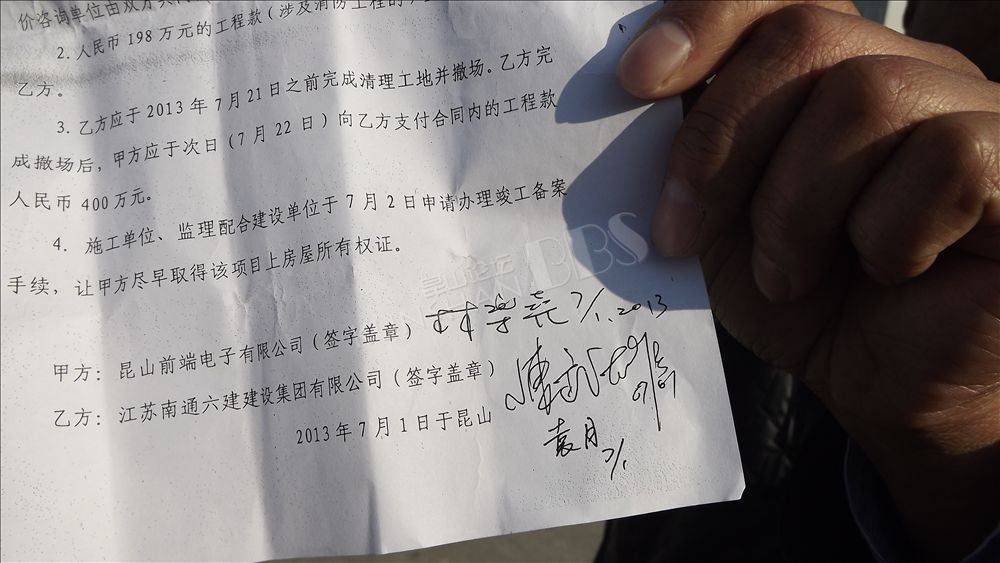 价咨询单位由双方共同
2. 人民币 198 万元的工程款（涉及消防工程的
乙方。
3. 乙方应于 2013 年 7 月 21 日之前完成清理工地并撤场。乙方完
成撤场后，甲方应于次日（7 月 22 日）向乙方支付合同内的工程款
人民币 400 万元。
4. 施工单位、监理配合建设单位于 7 月 2 日申请办理竣工备案
手续，让甲方尽早取得该项目上房屋所有权证。
昆山论坛 BBS
甲方：昆山前端电子有限公司（签字盖章） 7/1.2013
乙方：江苏南通六建建设集团有限公司（签字盖章）
2013 年 7 月 1 日于昆山
7/1